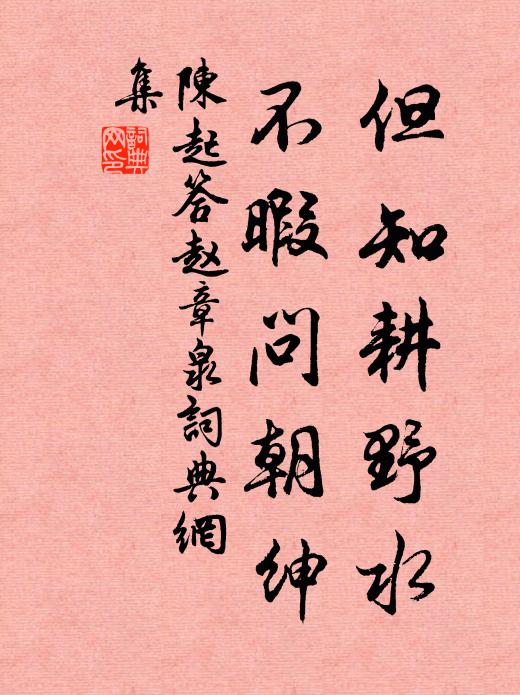 但知耕野水
不暇問朝紳
陳起答赵章泉詞典網
集
詞典網印